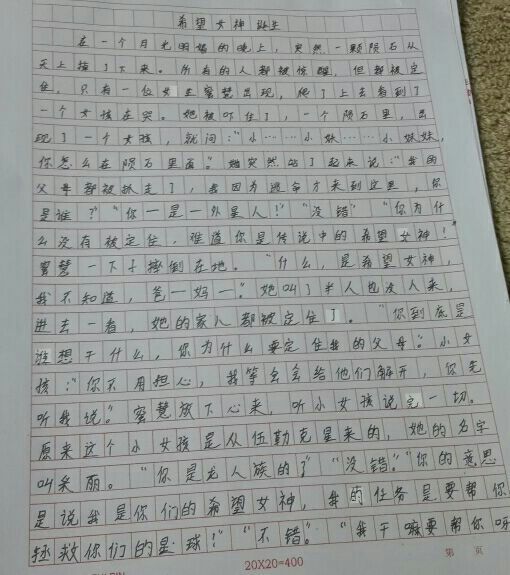 希望女神诞生
在一个月光明媚的晚上，突然一颗陨石从
天上掉了下来。所有的人都被惊醒，但都被定
住，只有一位女生蜜慧出现，爬了上去看到了
一个女孩在哭。她被吓住了，一个陨石里，出
现了一个女孩，就问："小……小妹……小妹妹，
你怎么在陨石里面。"她突然站了起来说："我的
父母都被抓走了，我因为逃命才来到这里，你
是谁？""你一是一外星人！""没错""你为什
么没有被定住，难道你是传说中的希望女神！"
蜜慧一下子摔倒在地。"什么，是希望女神，
我不知道，爸一妈一"她叫了半人也没人来，
进去一看，她的家人都被定住了。"你到底是
谁想干什么，你为什么要定住我的父母。"小女
孩："你不用担心，我等会会给他们解开，你先
听我说。"蜜慧放下心来，听小女孩说完一切。
原来这个小女孩是从伍勒克星来的，她的名字
叫米丽。"你是龙人族的！""没错。""你的意思
是说我是你们的希望女神，我的任务是要帮你
拯救你们的星球！""不错。""我干嘛要帮你呀
20X20=400
第 页